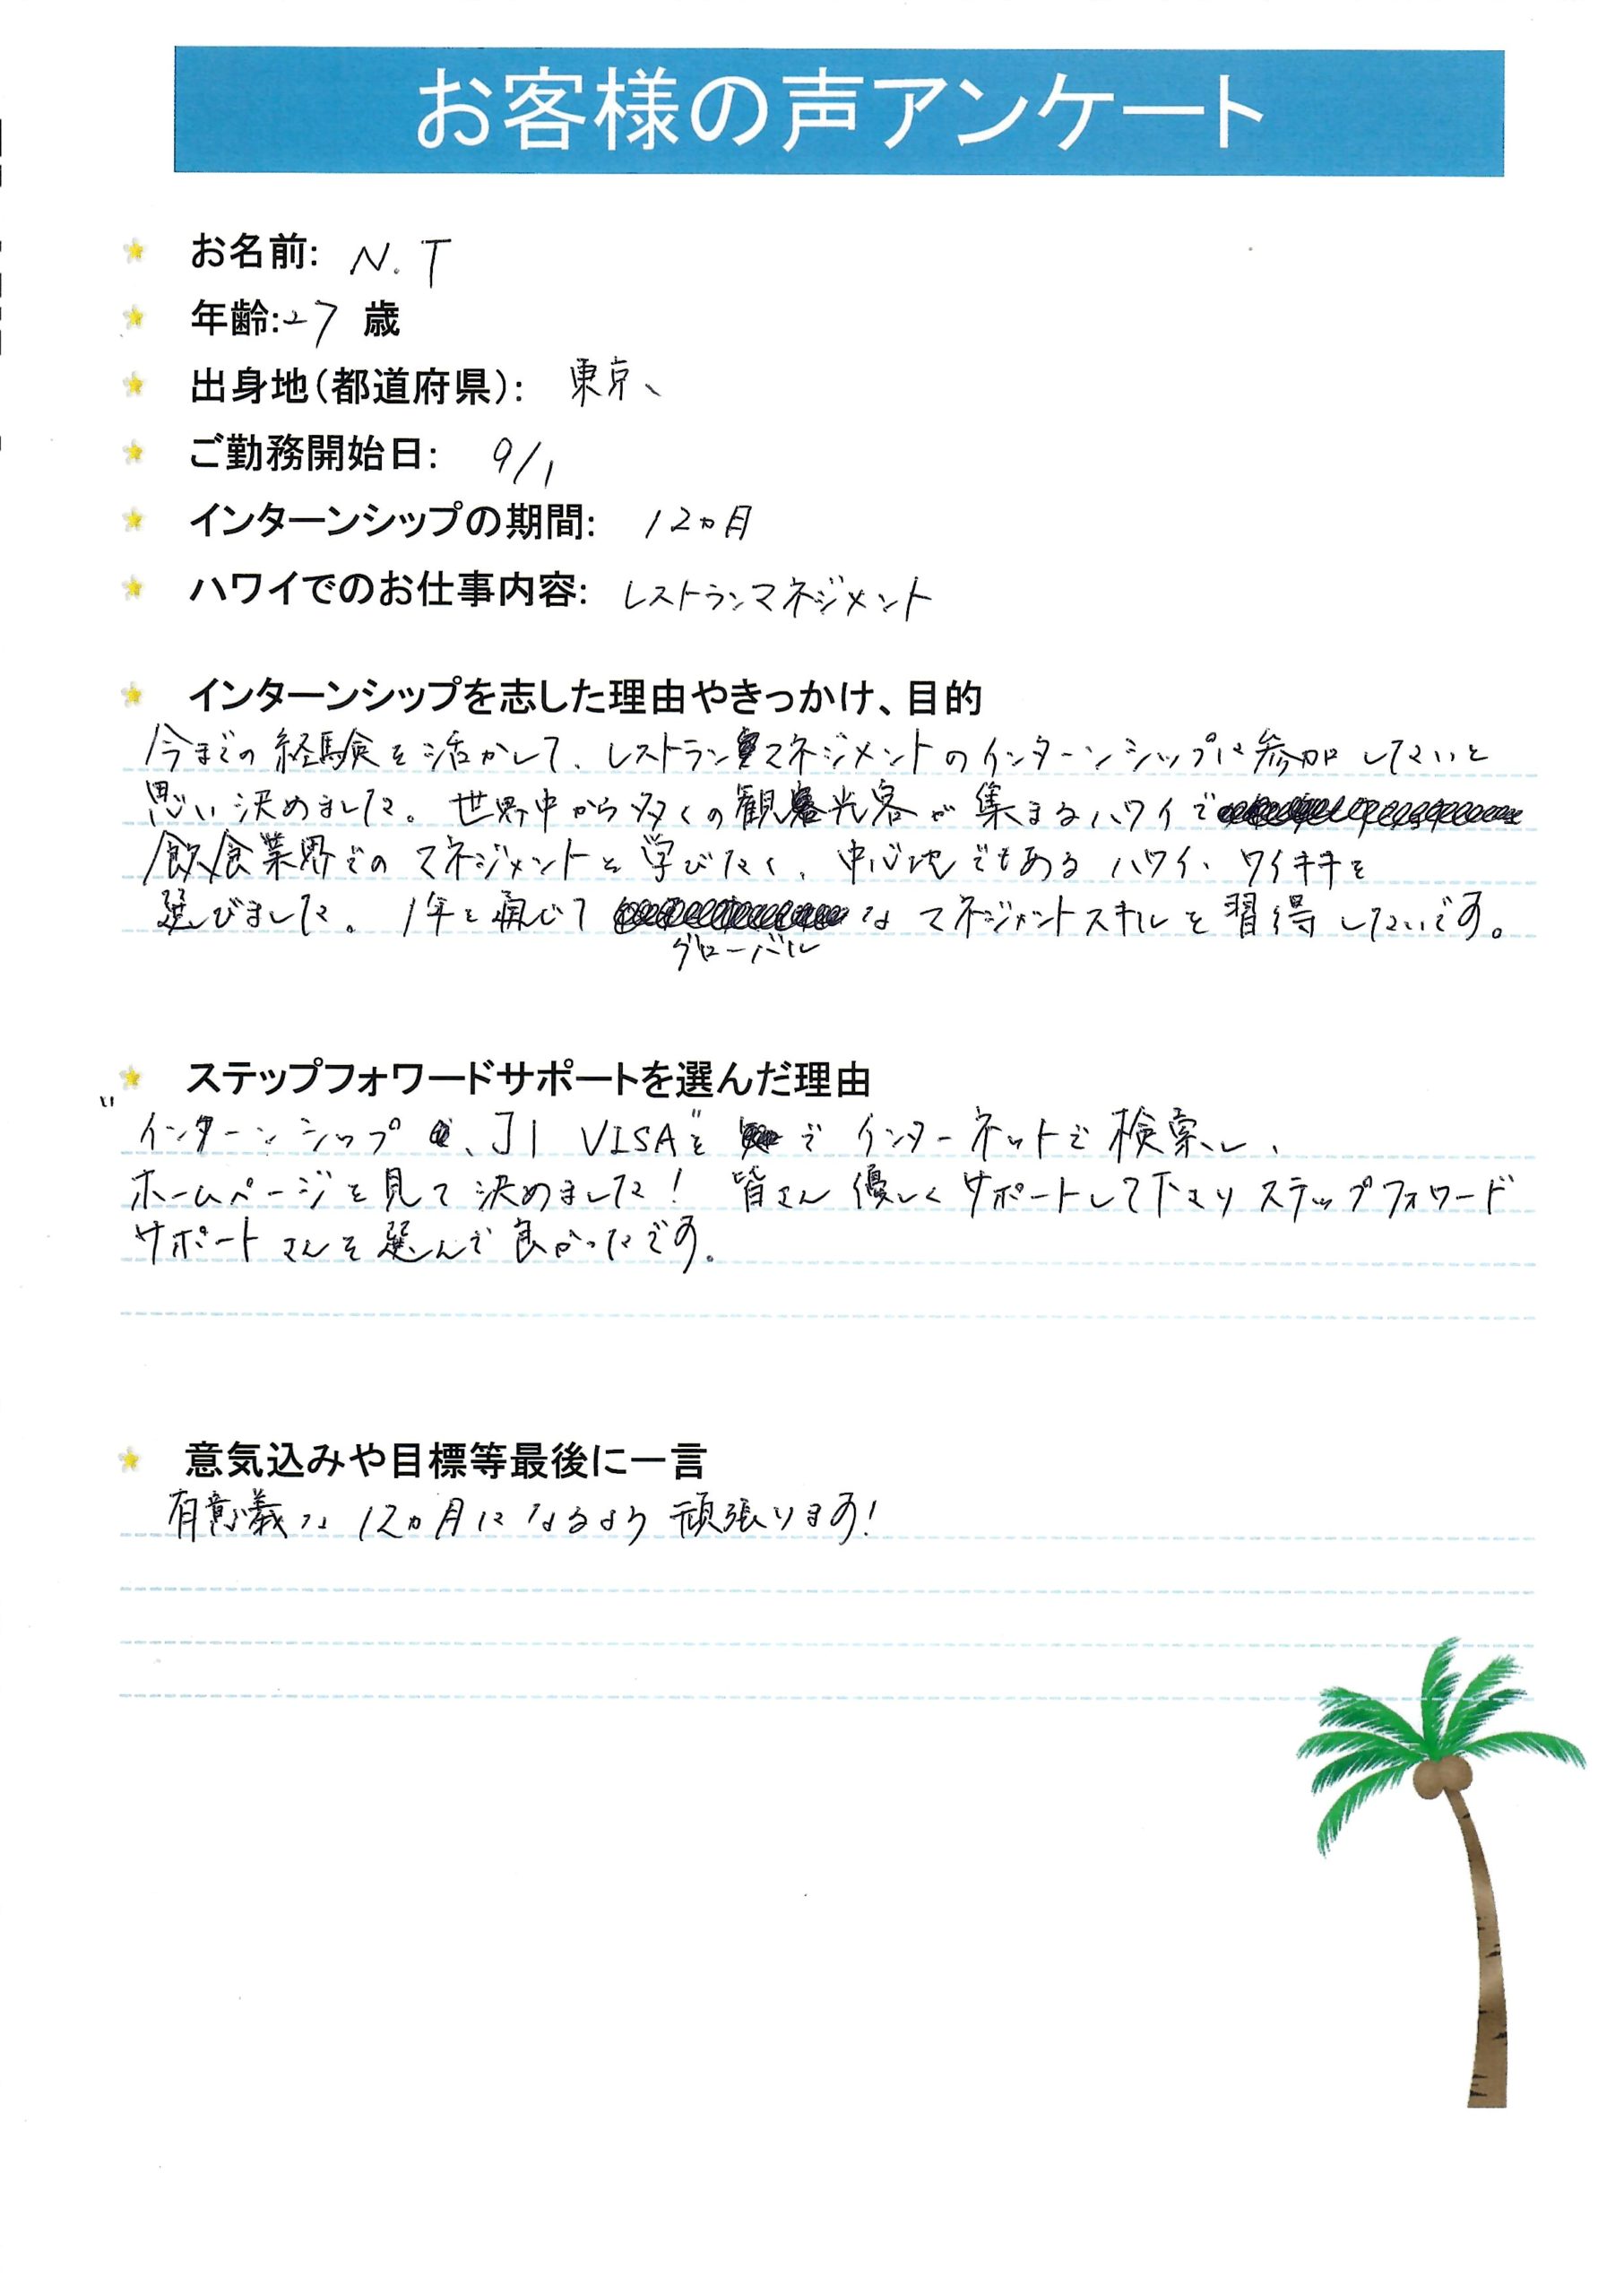 お客様の声アンケート
お名前: N.T
年齢:27 歳
出身地(都道府県): 東京、
ご勤務開始日: 9/1
インターンシップの期間: 12ヵ月
ハワイでのお仕事内容: レストランマネジメント
インターンシップを志した理由やきっかけ、目的
今までの経験を活かして、レストランマネジメントのインターンシップに参加したいと
思い決めました。世界中から多くの観光客が集まるハワイで
飲食業界でのマネジメントを学びたく、中心地でもあるハワイ、ワイキキを
選びました。1年を通じて なマネジメントスキルを習得したいです。
グローバル
ステップフォワードサポートを選んだ理由
"インターンシップ、J1 VISA"を でインターネットで検索し、
ホームページを見て決めました! 皆さん優しくサポートして下さりステップフォワード
サポートさんを選んで良かったです。
意気込みや目標等最後に一言
有意義な12ヵ月になるよう頑張ります!